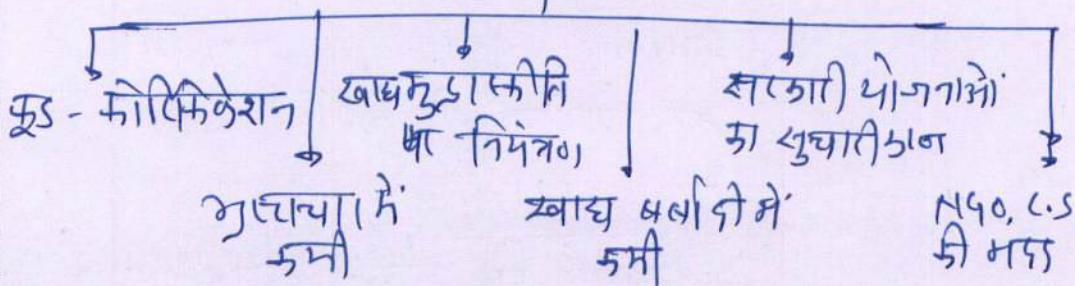 फूड - फोर्टिफिकेशन
खाद्य मुद्रास्फीति
पर नियंत्रण
सरकारी योजनाओं
का सुधारीकरण
भ्रष्टाचार में
कमी
खाद्य बर्बादी में
कमी
NGO, C.S
की मदद